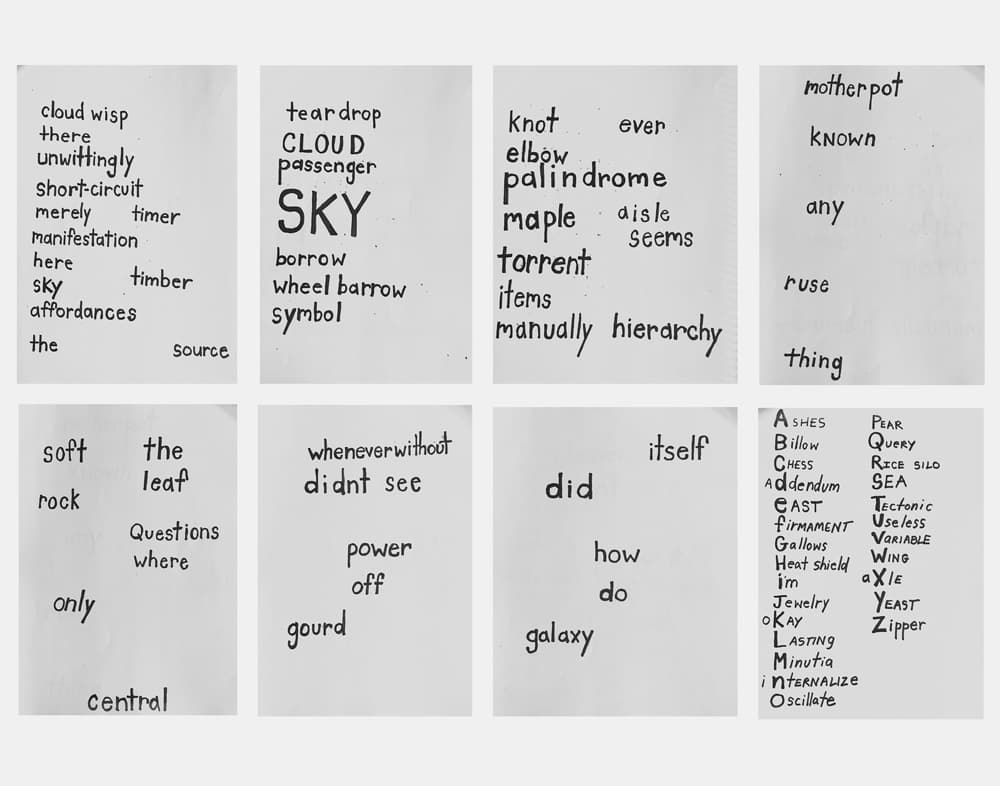 cloud wisp
there
unwittingly
short-circuit
merely timer
manifestation
here
sky timber
affordances
the source
teardrop
CLOUD
passenger
SKY
borrow
wheel barrow
symbol
knot ever
elbow
palindrome
maple aisle
seems
torrent
items
manually hierarchy
motherpot
KNOWN
any
ruse
thing
soft the
leaf
rock
Questions
where
only
central
wheneverwithout
didnt see
power
off
gourd
itself
did
how
do
galaxy
ASHES
Billow
CHESS
Addendum
eAST
fiRMAMENT
Gallows
Heat shield
i'm
Jewelry
oKAY
LASTING
Minutia
inTERNALIZE
Oscillate
PEAR
QUERY
RICE SILO
SEA
Tectonic
Useless
VARIABLE
WING
aXlE
YEAST
Zipper